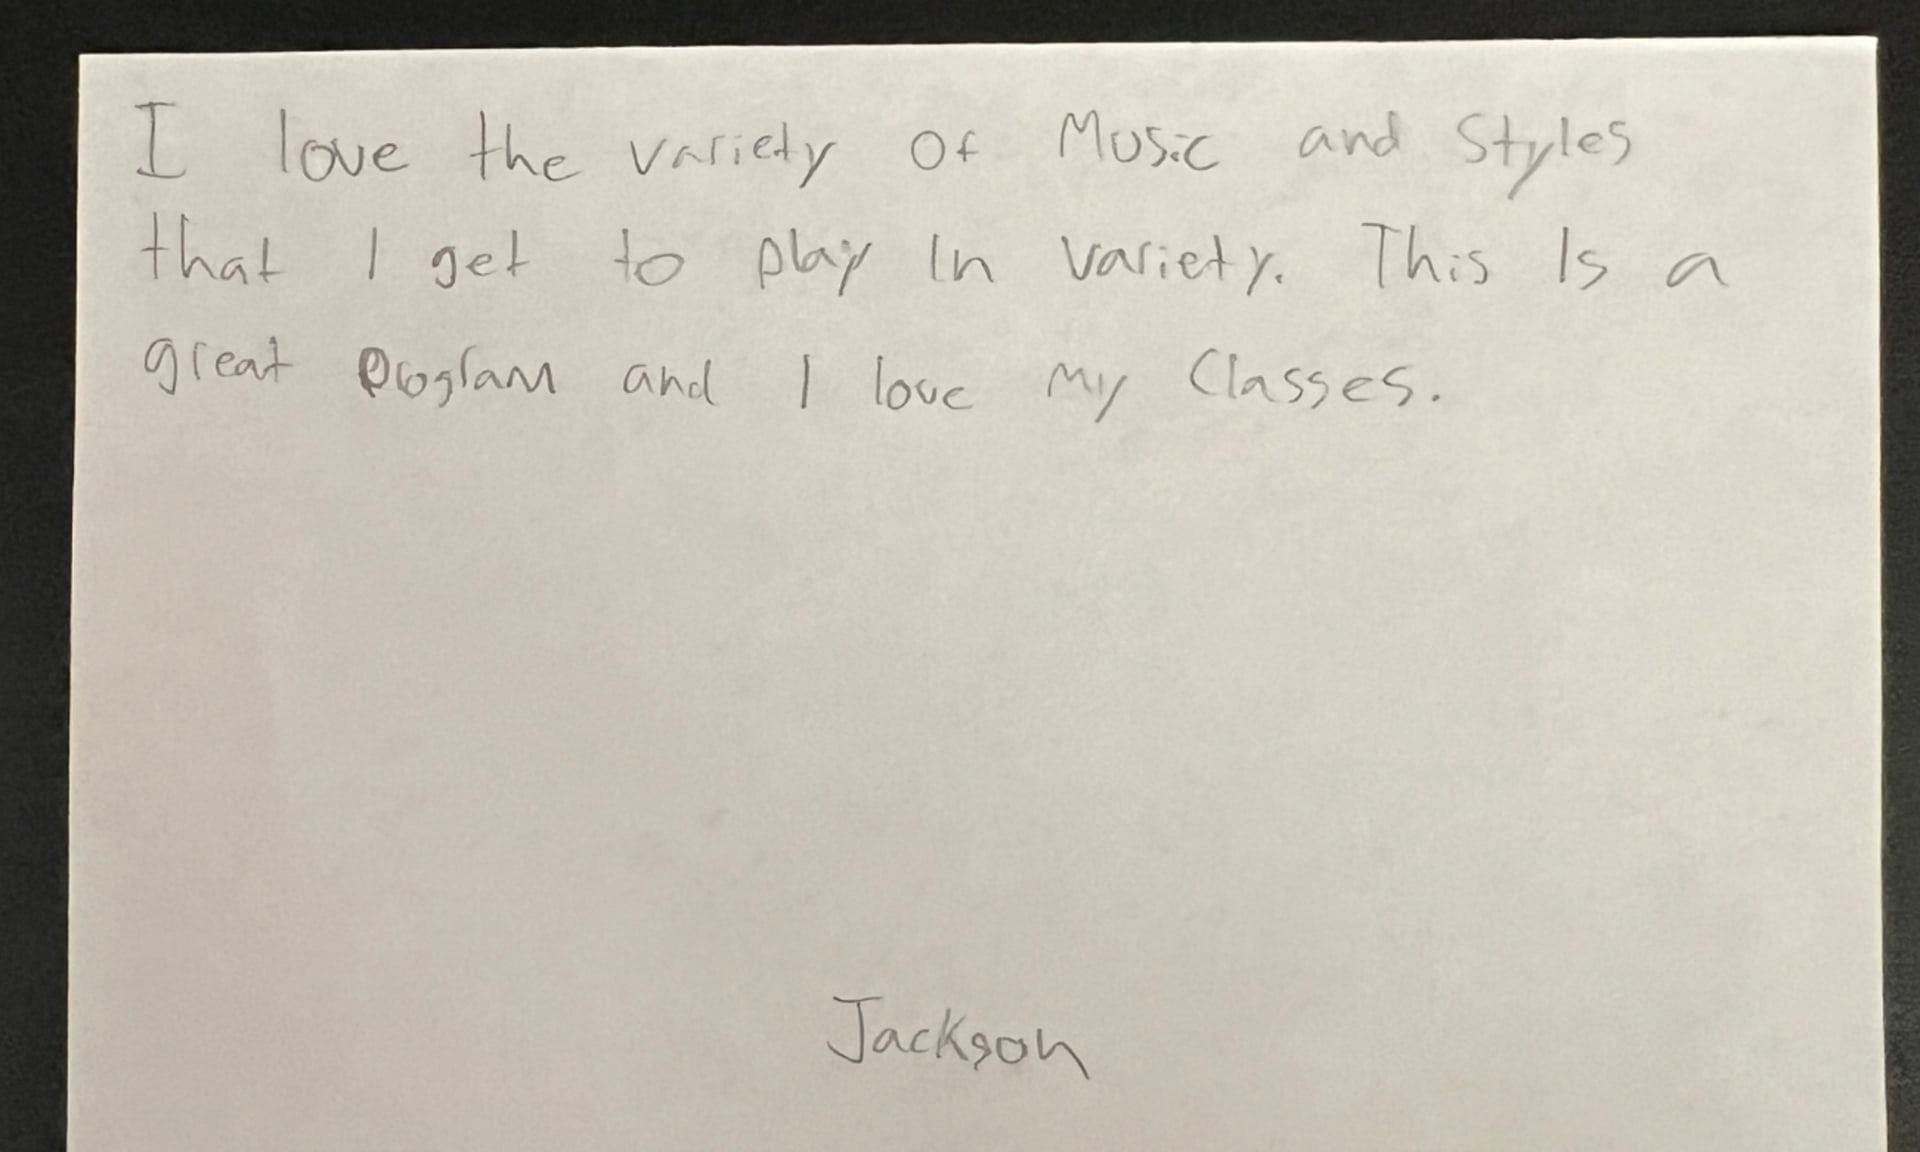 I love the variety of Music and Styles
that I get to play In variety. This Is a
great program and I love my Classes.
Jackson